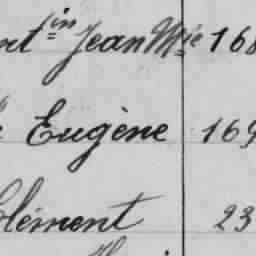 Jean Mie 168
Eugène 169
Clément 23